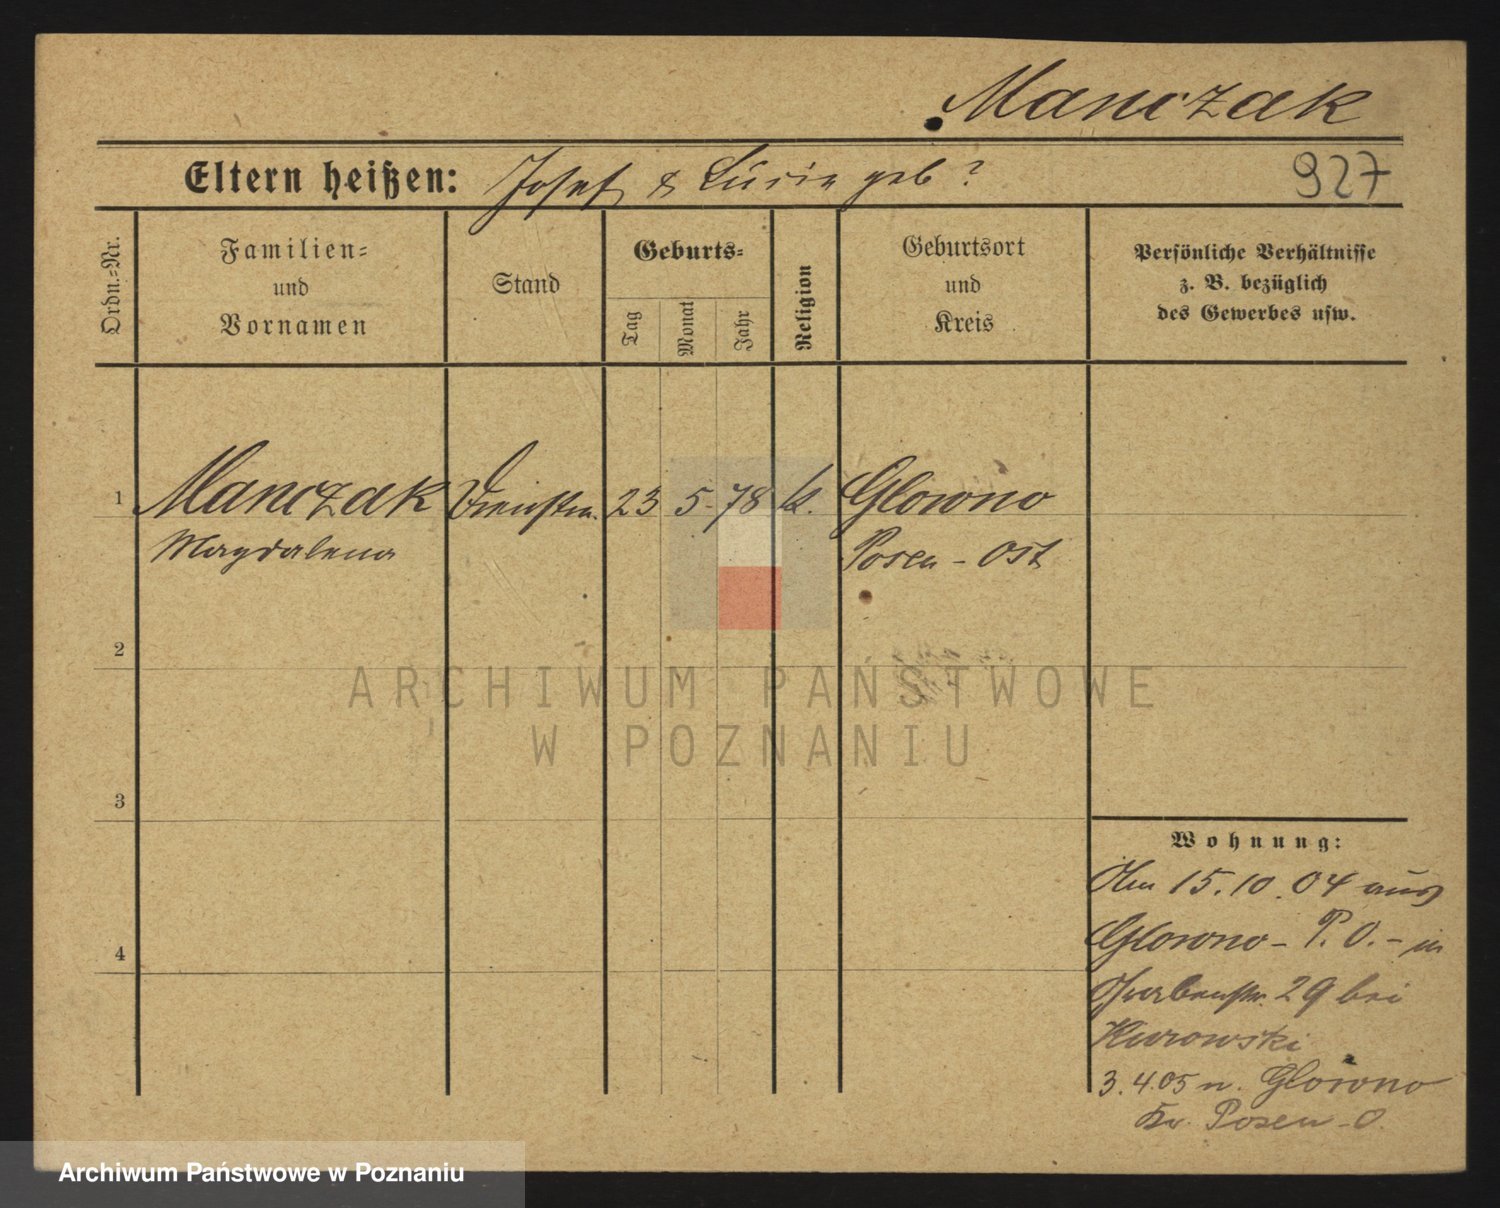 Manczak
Eltern heißen: Josef & Lucie geb?
927
Ordn.=Nr.
Familien=
und
Vornamen
Stand
Geburts=
Tag
Monat
Jahr
Religion
Geburtsort
und
Kreis
Persönliche Verhältnisse
z. B. bezüglich
des Gewerbes usw.
1 Manczak Dienstm. 23 5. 78 k. Glowno
Magdalena Posen - Ost
2
3
4
Wohnung:
Am 15.10.04 aus
Glowno - P. O. - in
Grabenstr. 29 bei
Kurowski
3.4.05 n. Glowno
Kr. Posen - O.
ARCHIWUM PAŃSTWOWE
W POZNANIU
Archiwum Państwowe w Poznaniu